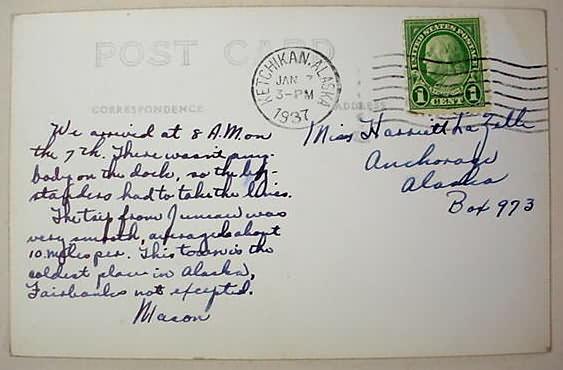 POST CARD
CORRESPONDENCE
ADDRESS
KETCHIKAN, ALASKA
JAN 7
3-PM
1937
UNITED STATES POSTAGE
1 CENT 1
We arrived at 8 A.M on
the 7th. There wasn't any-
body on the dock, so the
standers had to take the lines.
The trip from Juneau was
very smooth, averaged about
10 miles per. This town is the
coldest place in Alaska,
Fairbanks not excepted.
Mason
Miss Harriett
Anchorage
Alaska
Box 973